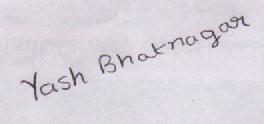 Yash Bhatnagar